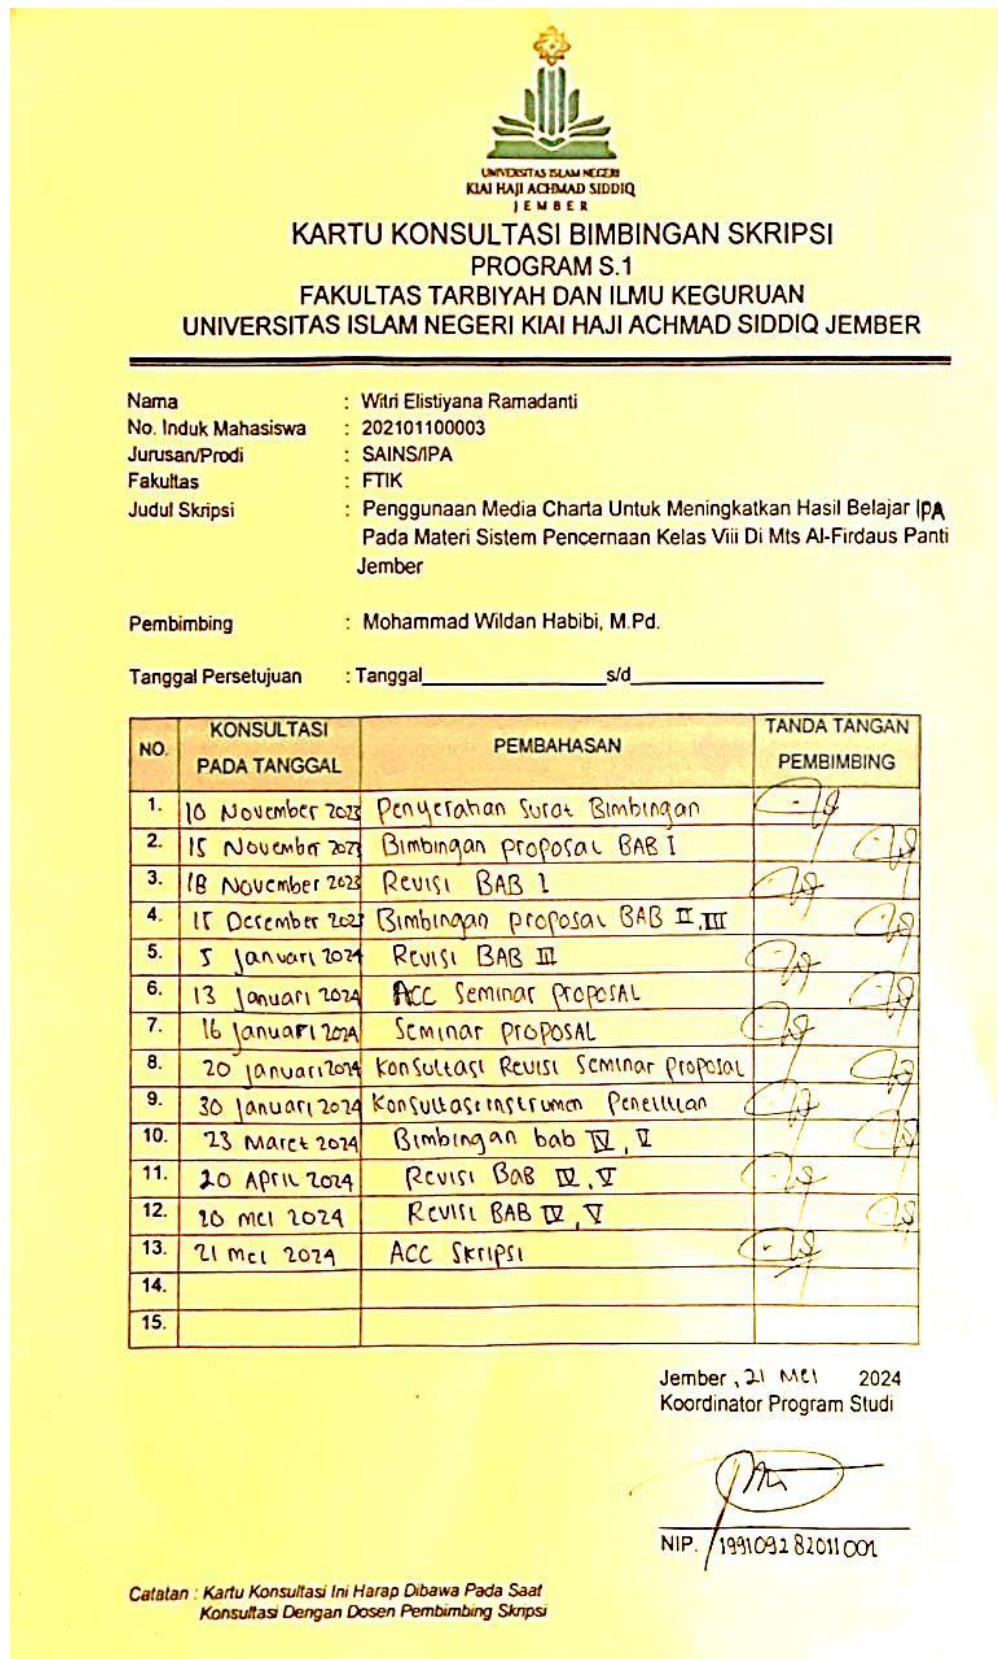 UNIVERSITAS ISLAM NEGERI
KIAI HAJI ACHMAD SIDDIQ
JEMBER
KARTU KONSULTASI BIMBINGAN SKRIPSI
PROGRAM S.1
FAKULTAS TARBIYAH DAN ILMU KEGURUAN
UNIVERSITAS ISLAM NEGERI KIAI HAJI ACHMAD SIDDIQ JEMBER
Nama : Witri Elistiyana Ramadanti
No. Induk Mahasiswa : 202101100003
Jurusan/Prodi : SAINS/IPA
Fakultas : FTIK
Judul Skripsi : Penggunaan Media Charta Untuk Meningkatkan Hasil Belajar IPA
Pada Materi Sistem Pencernaan Kelas Viii Di Mts Al-Firdaus Panti
Jember
Pembimbing : Mohammad Wildan Habibi, M.Pd.
Tanggal Persetujuan : Tanggal_________________s/d__________________
NO. KONSULTASI PADA TANGGAL PEMBAHASAN TANDA TANGAN PEMBIMBING
1. 10 November 2023 Penyerahan Surat Bimbingan
2. 15 November 2023 Bimbingan proposal BAB I
3. 18 November 2023 Revisi BAB 1
4. 15 Desember 2023 Bimbingan proposal BAB II, III
5. 5 Januari 2024 Revisi BAB III
6. 13 Januari 2024 ACC Seminar proposAL
7. 16 Januari 2024 Seminar proposAL
8. 20 Januari 2024 Konsultasi Revisi Seminar Proposal
9. 30 Januari 2024 Konsultasi instrumen Penelitian
10. 23 Maret 2024 Bimbingan bab IV, V
11. 20 April 2024 Revisi BaB IV, V
12. 20 mei 2024 Revisi BAB IV, V
13. 21 mei 2024 ACC Skripsi
14.
15.
Jember, 21 Mei 2024
Koordinator Program Studi
NIP. 199109282011001
Catatan : Kartu Konsultasi Ini Harap Dibawa Pada Saat
Konsultasi Dengan Dosen Pembimbing Skripsi